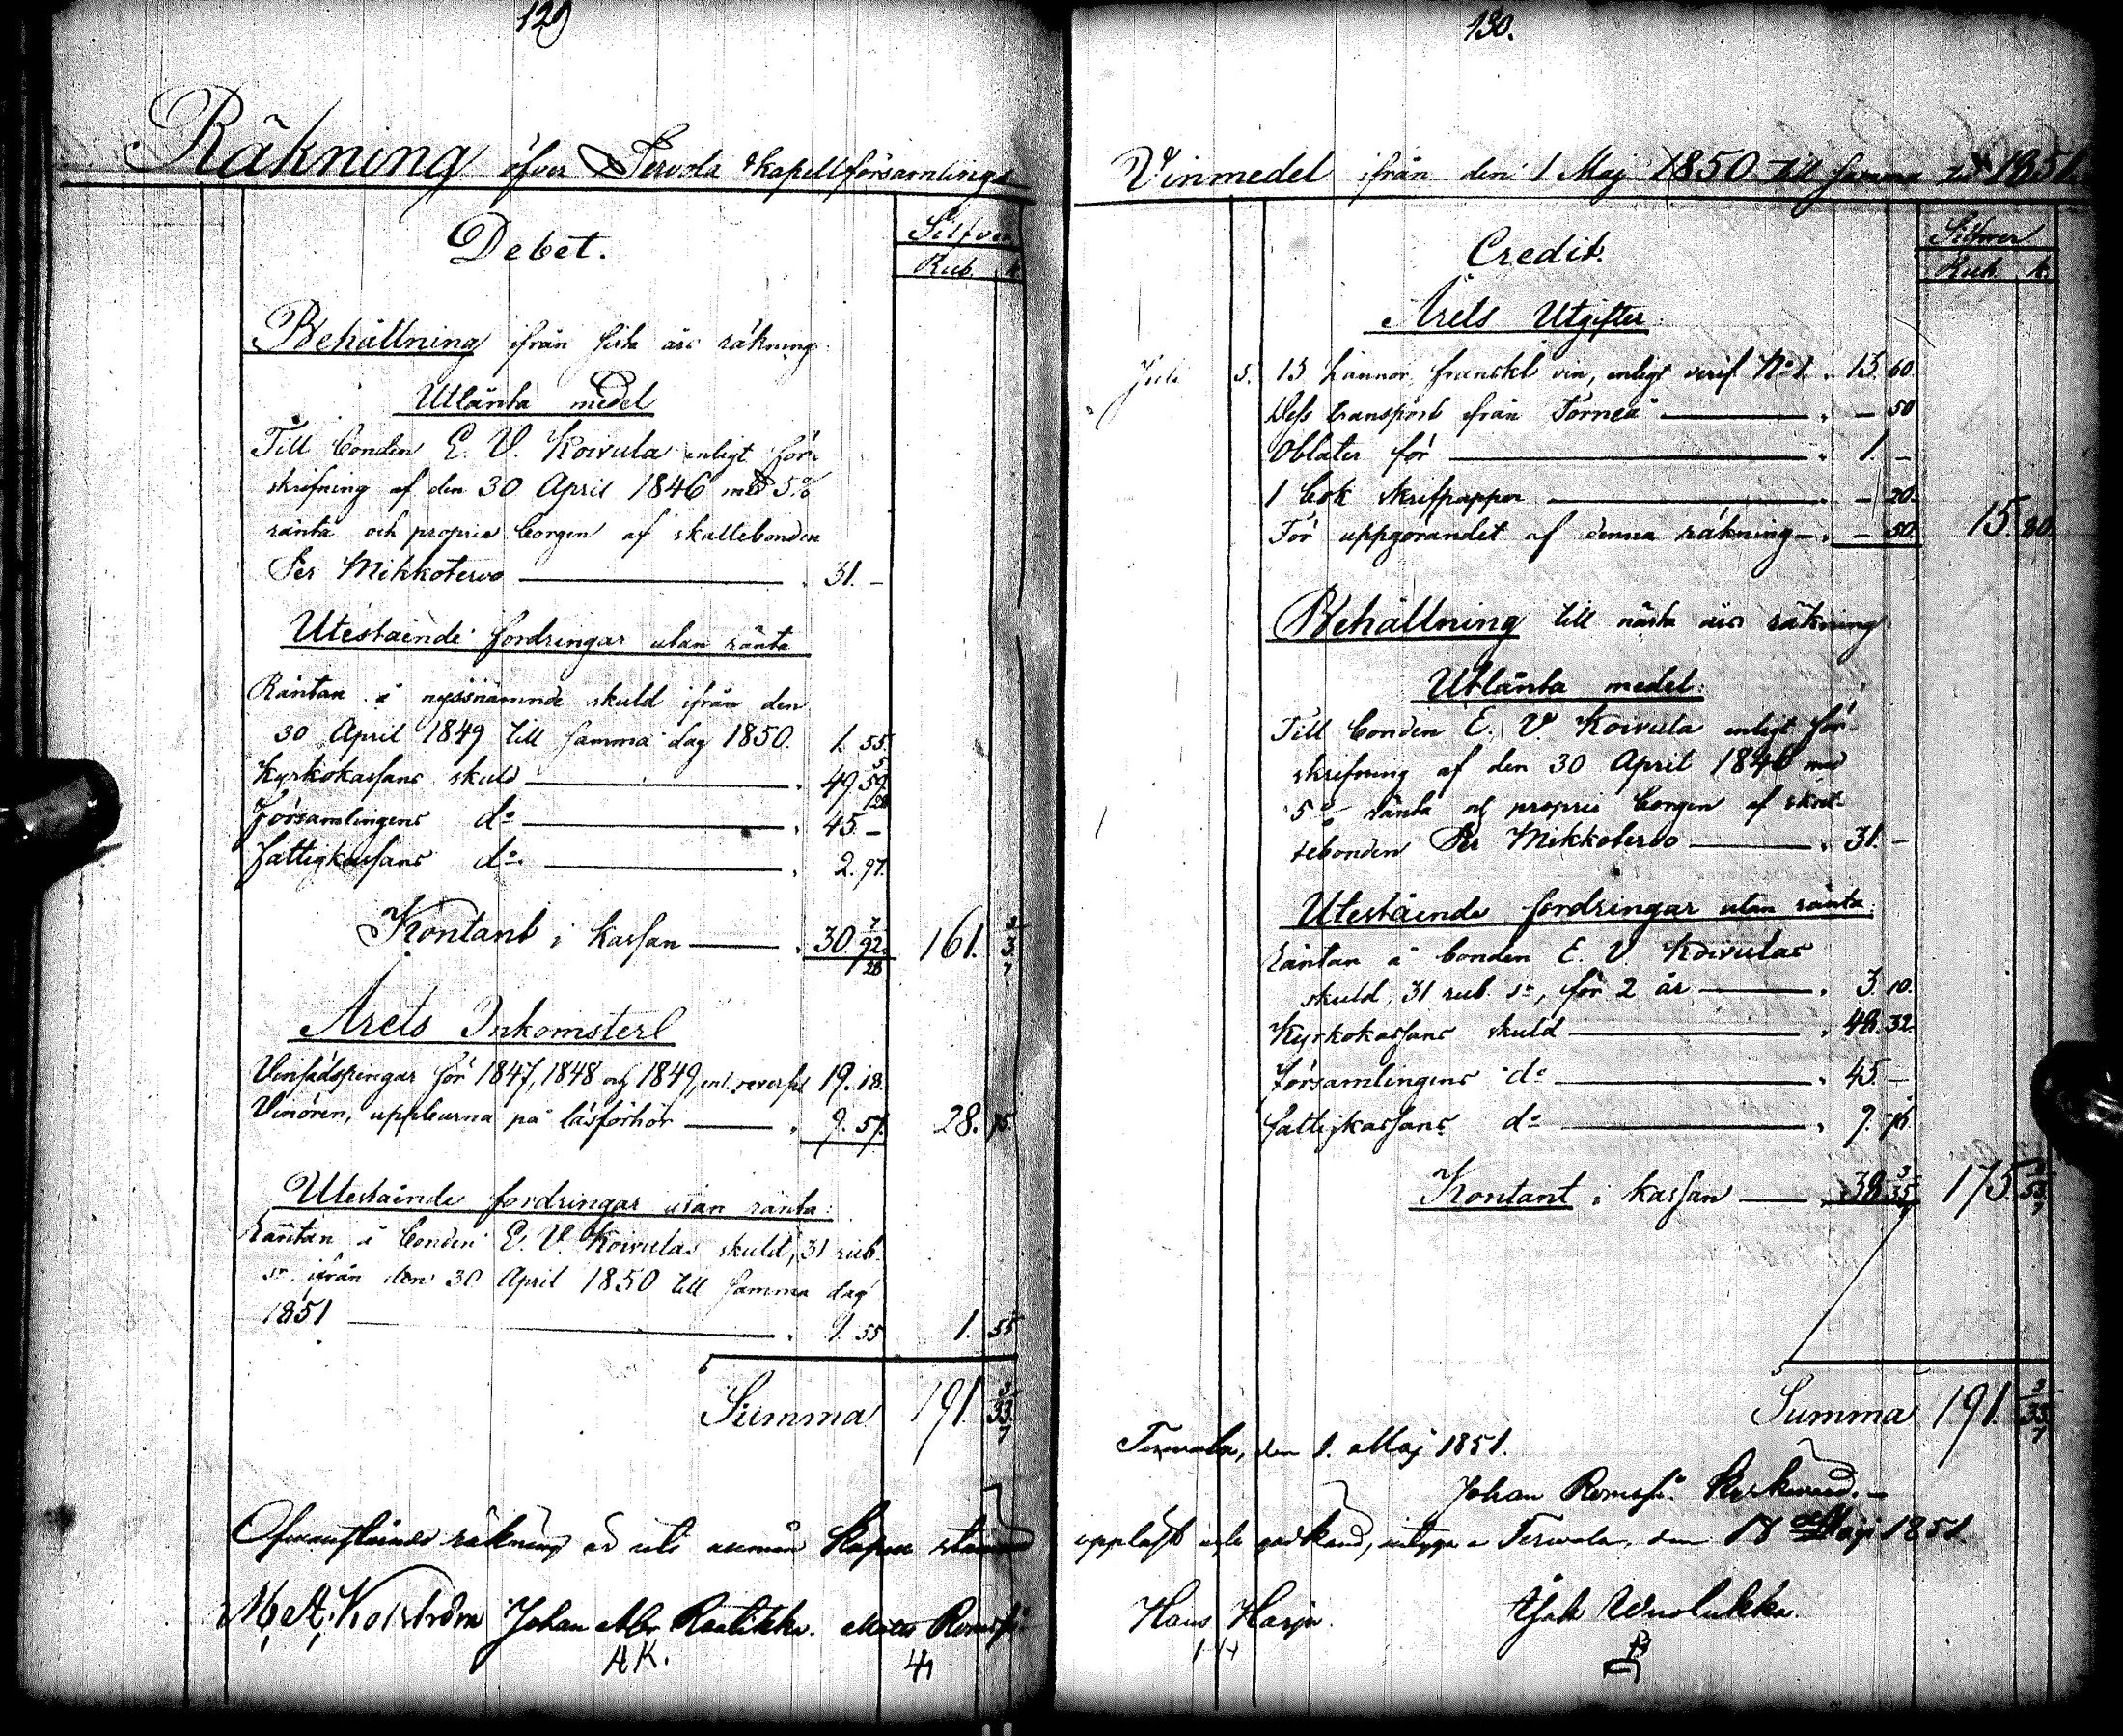 129
Räkning öfver Tervola Kapellförsamlings
Debet.
Silfver
Rub. k.
Behållning ifrån sista års räkning
Utlånta medel
Till bonden E. V. Koivula enligt för-
skrifning af den 30 April 1846 med 5%
ränta och proprie borgen af skattebonden
Per Mikkotervo 31. –
Utestående fordringar utan ränta
Räntan å nyssnämnde skuld ifrån den
30 April 1849 till samma dag 1850. 1. 55.
Kyrkokassans skuld 49. 59 5/28
Församlingens do 45. –
Fattigkassans do 2. 97.
Kontant i kassan 30. 92 7/28 161. 3 3/7
Årets Inkomster
Vinsädspengar för 1847, 1848 och 1849, enl. reversal 19. 18.
Vinören, uppburna på läsförhör 9. 57. 28. 75.
Utestående fordringar utan ränta:
Räntan å bonden E. V. Koivulas skuld, 31 rub.
sr. ifrån den 30 April 1850 till samma dag
1851 1. 55 1. 55
Summa 191. 33 3/7
Ofvanstående räkning är uti allmän Kapell stämma
M. A. Kolström Johan Abr. Raatikka. Matts Romsi
A K.
130.
Vinmedel ifrån den 1 Maj 1850 till samma tid 1851.
Credit.
Silfver
Rub. k.
Årets Utgifter
Juli 5. 13 kannor franskt vin, enligt verif. No 1. 13. 60
Dess transport ifrån Torneå – 50
Oblater för 1. –
1 bok skrifpapper – 20.
För uppgörandet af denna räkning – 50. 15. 80.
Behållning till nästa års räkning
Utlånta medel:
Till bonden E. V. Koivula enligt för-
skrifning af den 30 April 1846 med
5% ränta och proprie borgen af skat-
tebonden Per Mikkotervo 31. –
Utestående fordringar utan ränta:
Räntan å bonden E. V. Koivulas
skuld, 31 rub. sr, för 2 år 3. 10.
Kyrkokassans skuld 48. 32.
Församlingens do 45. –
Fattigkassans do 9. 76
Kontant i kassan 38. 35 3/7 175. 53 3/7
Summa 191. 33 3/7
Tervola, den 1. Maj 1851.
Johan Romsi. Kyrkvärd.
uppläst och godkänd, intyga Tervola, den 18 Maji 1851.
Hans Harju.